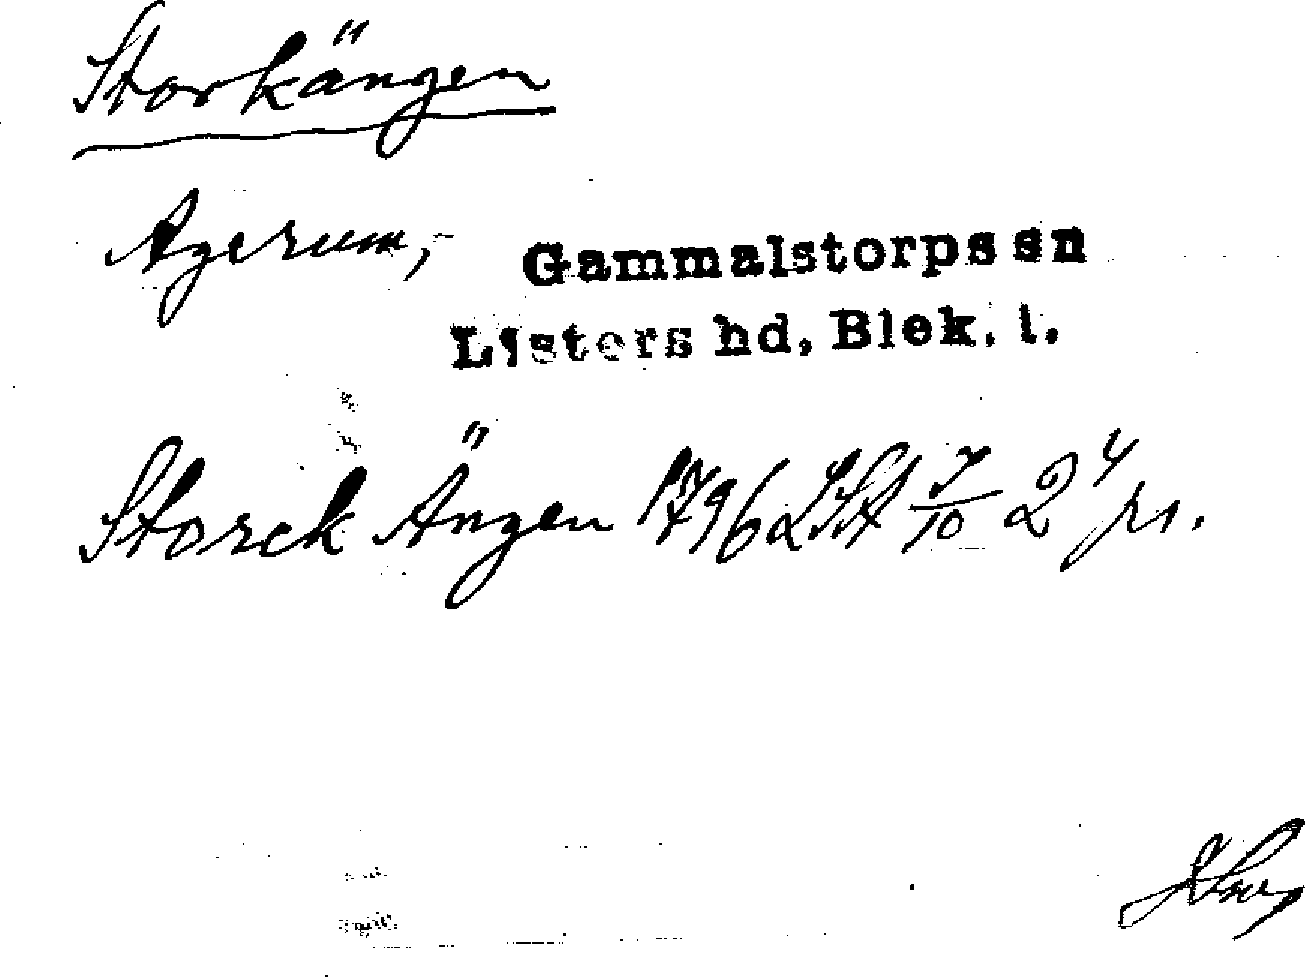 Storkängen
Agerum,
Gammalstorps sn
Listers hd, Blek. l.
Storck Ängen 1796 LSA 7/10 2 4 prs.